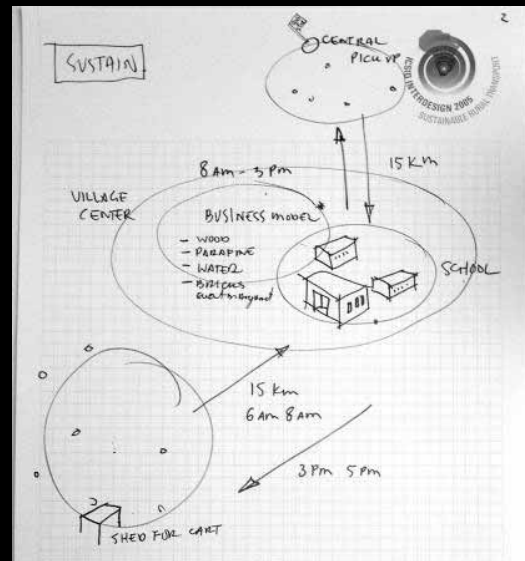 2
SUSTAIN
CENTRAL
PICK UP
ICSID INTERDESIGN 2005
SUSTAINABLE RURAL TRANSPORT
15 Km
8 Am - 3 pm
VILLAGE
CENTER
BUSINESS MODEL
- WOOD
- PARAFINE
- WATER
- BRICKS
SCHOOL
15 Km
6 Am 8 am
3 pm 5 pm
SHED FOR CART